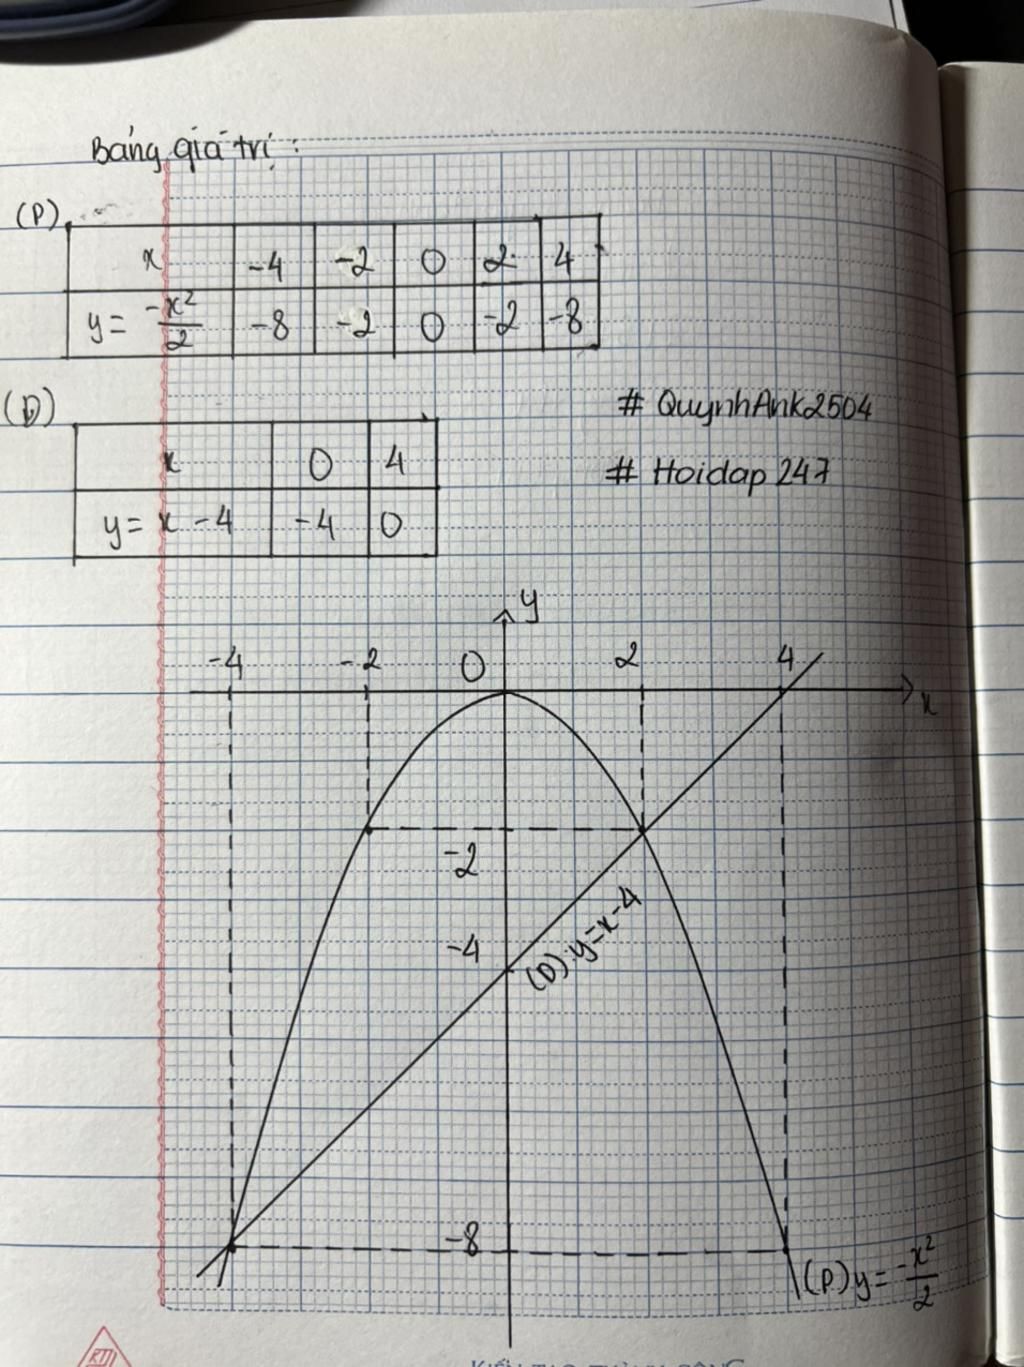 Bảng giá trị :
(P)
x -4 -2 0 2 4
y = -x²/2 -8 -2 0 -2 -8
(D)
x 0 4
y = x - 4 -4 0
# QuynhAnk2504
# Hoidap 247
y
-4 -2 0 2 4
x
-2
-4
(D): y=x-4
-8
(P) y = -x²/2